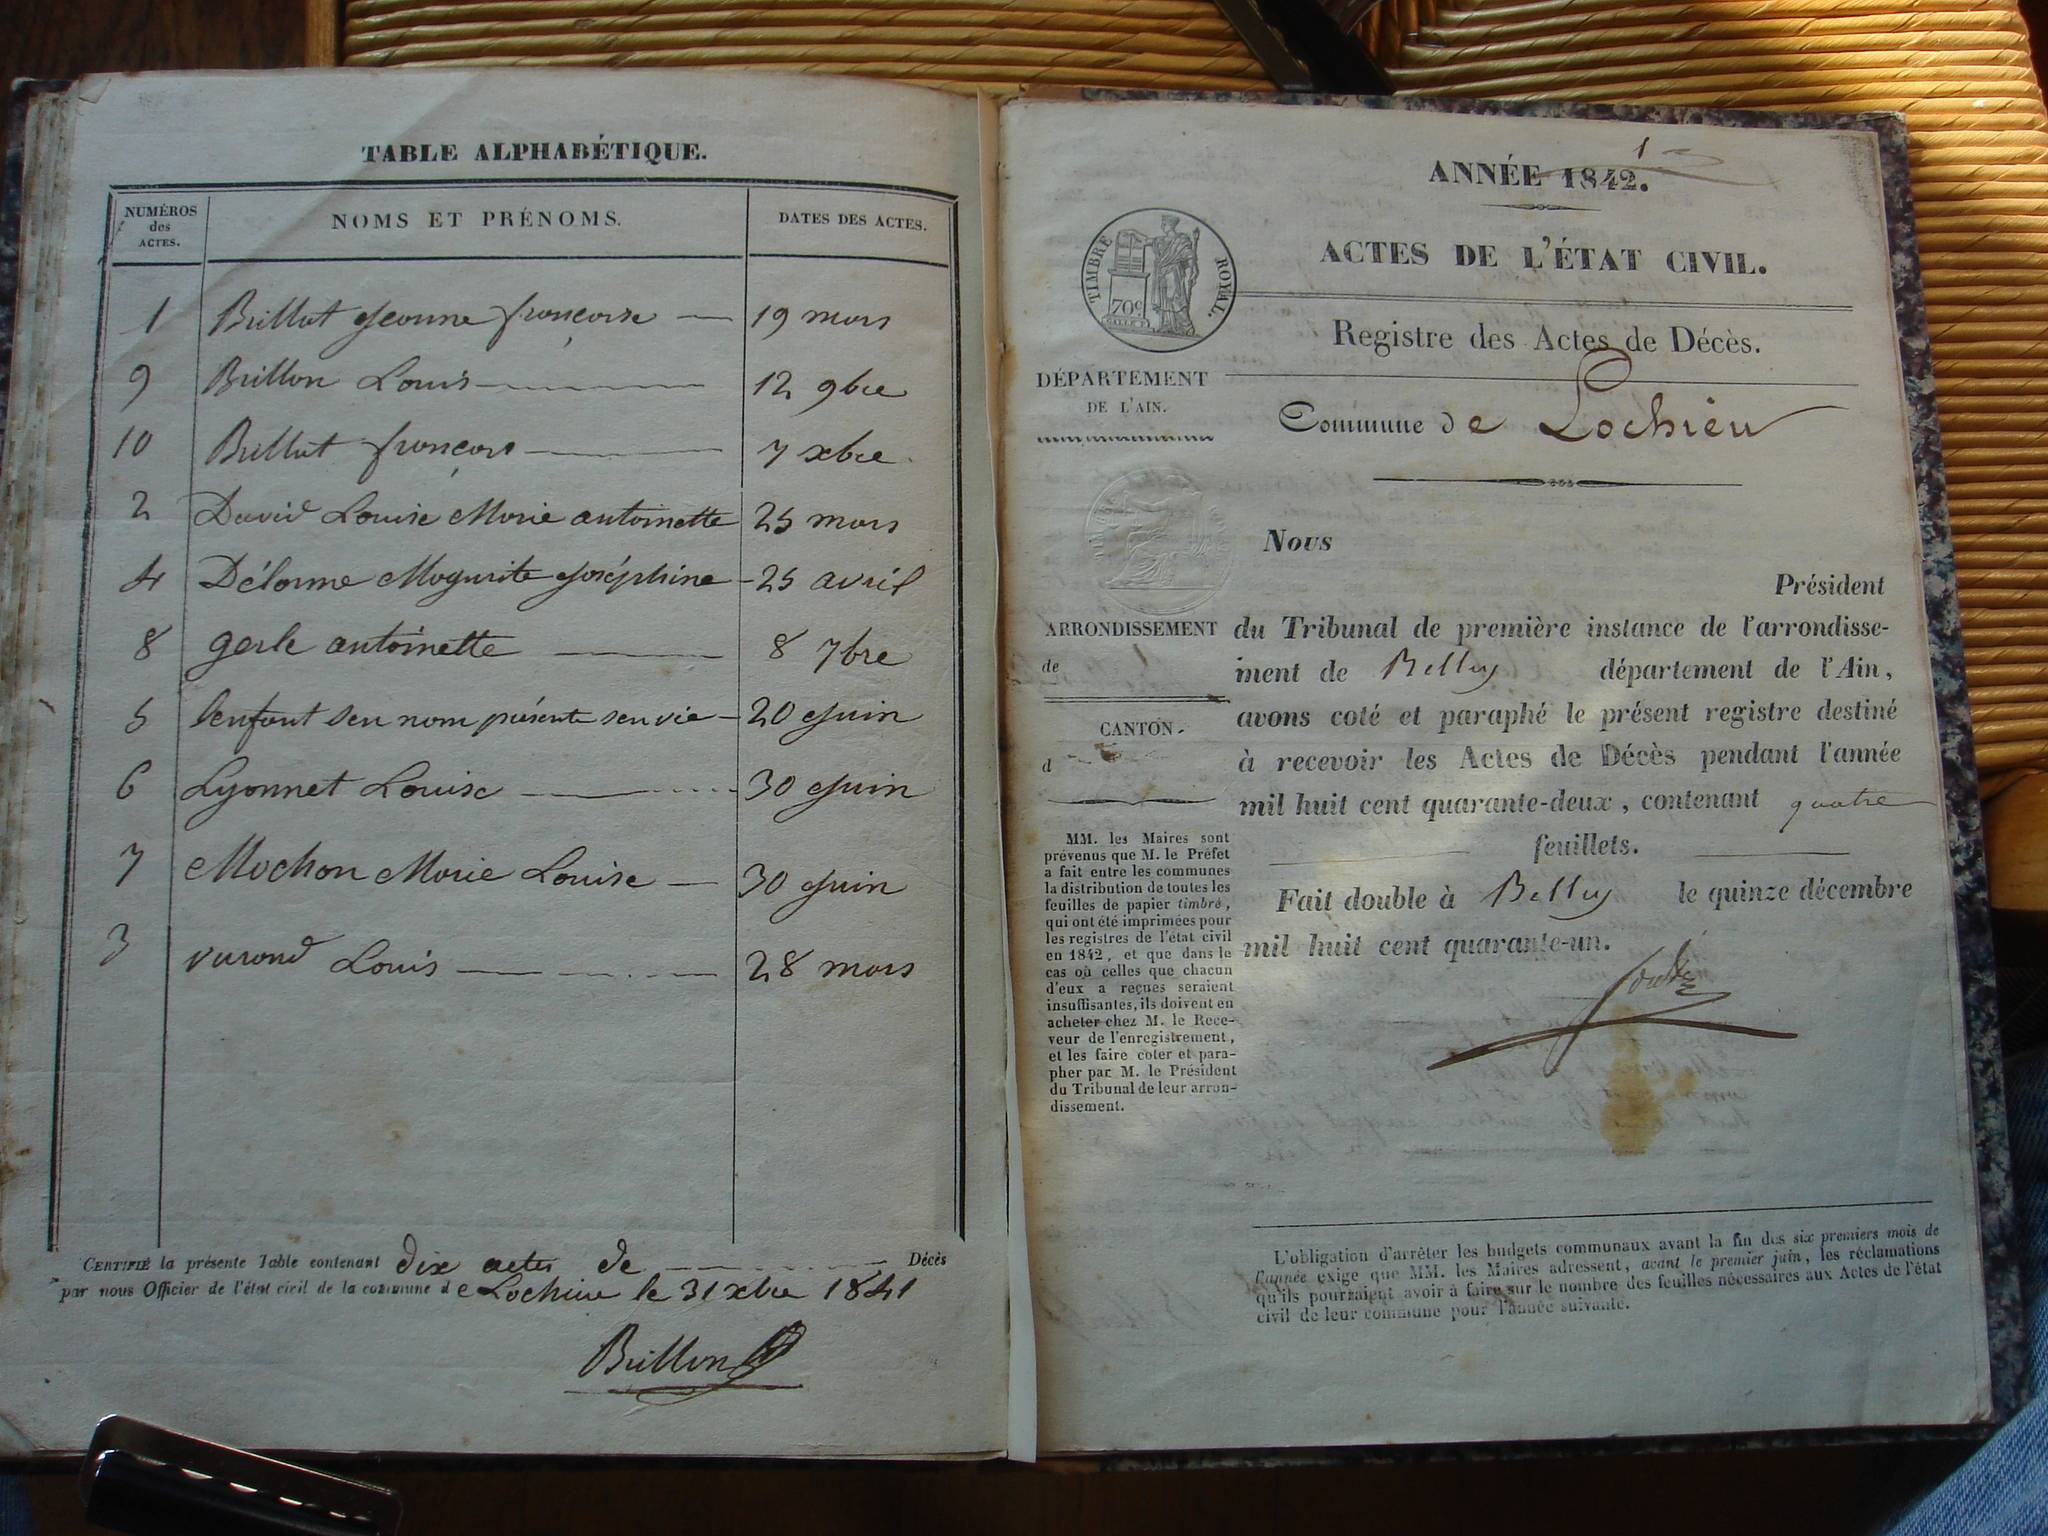 TABLE ALPHABÉTIQUE.
NUMÉROS des ACTES. NOMS ET PRÉNOMS. DATES DES ACTES.
1 Brillat Jeanne françoise 19 mars
9 Brillon Louis 12 9bre
10 Brillat françois 7 xbre
2 David Louise Marie antoinette 25 mars
4 Délorme Magurite Joséphine 25 avril
8 gerle antoinette 8 7bre
5 lenfant sen nom présenté sen vie 20 Juin
6 Lyonnet Louise 30 Juin
7 Mochon Marie Louise 30 Juin
3 vurond Louis 28 mars
CERTIFIÉ la présente Table contenant dix actes de Décès
par nous Officier de l'état civil de la commune de Lochieu le 31 xbre 1841
Brillon
1
ANNÉE 1842.
ACTES DE L'ÉTAT CIVIL.
TIMBRE ROYAL.
70c
Registre des Actes de Décès.
DÉPARTEMENT
DE L'AIN.
Commune de Lochieu
Nous
Président
ARRONDISSEMENT
de
CANTON
d
du Tribunal de première instance de l'arrondisse-
ment de Belley département de l'Ain,
avons coté et paraphé le présent registre destiné
à recevoir les Actes de Décès pendant l'année
mil huit cent quarante-deux, contenant quatre
feuillets.
Fait double à Belley le quinze décembre
mil huit cent quarante-un.
MM. les Maires sont
prévenus que M. le Préfet
a fait entre les communes
la distribution de toutes les
feuilles de papier timbré,
qui ont été imprimées pour
les registres de l'état civil
en 1842, et que dans le
cas où celles que chacun
d'eux a reçues seraient
insuffisantes, ils doivent en
acheter chez M. le Rece-
veur de l'enregistrement,
et les faire coter et para-
pher par M. le Président
du Tribunal de leur arron-
dissement.
L'obligation d'arrêter les budgets communaux avant la fin des six premiers mois de
l'année exige que MM. les Maires adressent, avant le premier juin, les réclamations
qu'ils pourraient avoir à faire sur le nombre des feuilles nécessaires aux Actes de l'état
civil de leur commune pour l'année suivante.